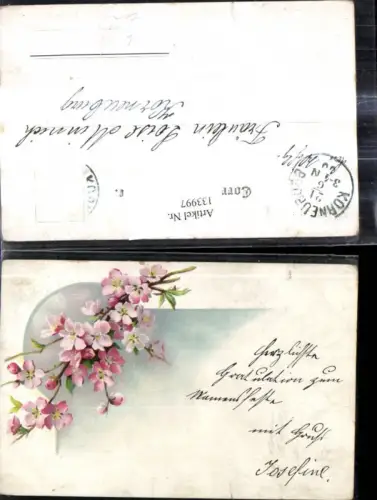 Fräulein Loise
Korneuburg
Artikel Nr.
133997
Corr
KORNEUBURG
Herzlichste
Gratulation zum
Namensfeste
mit Gruß
Josefine.